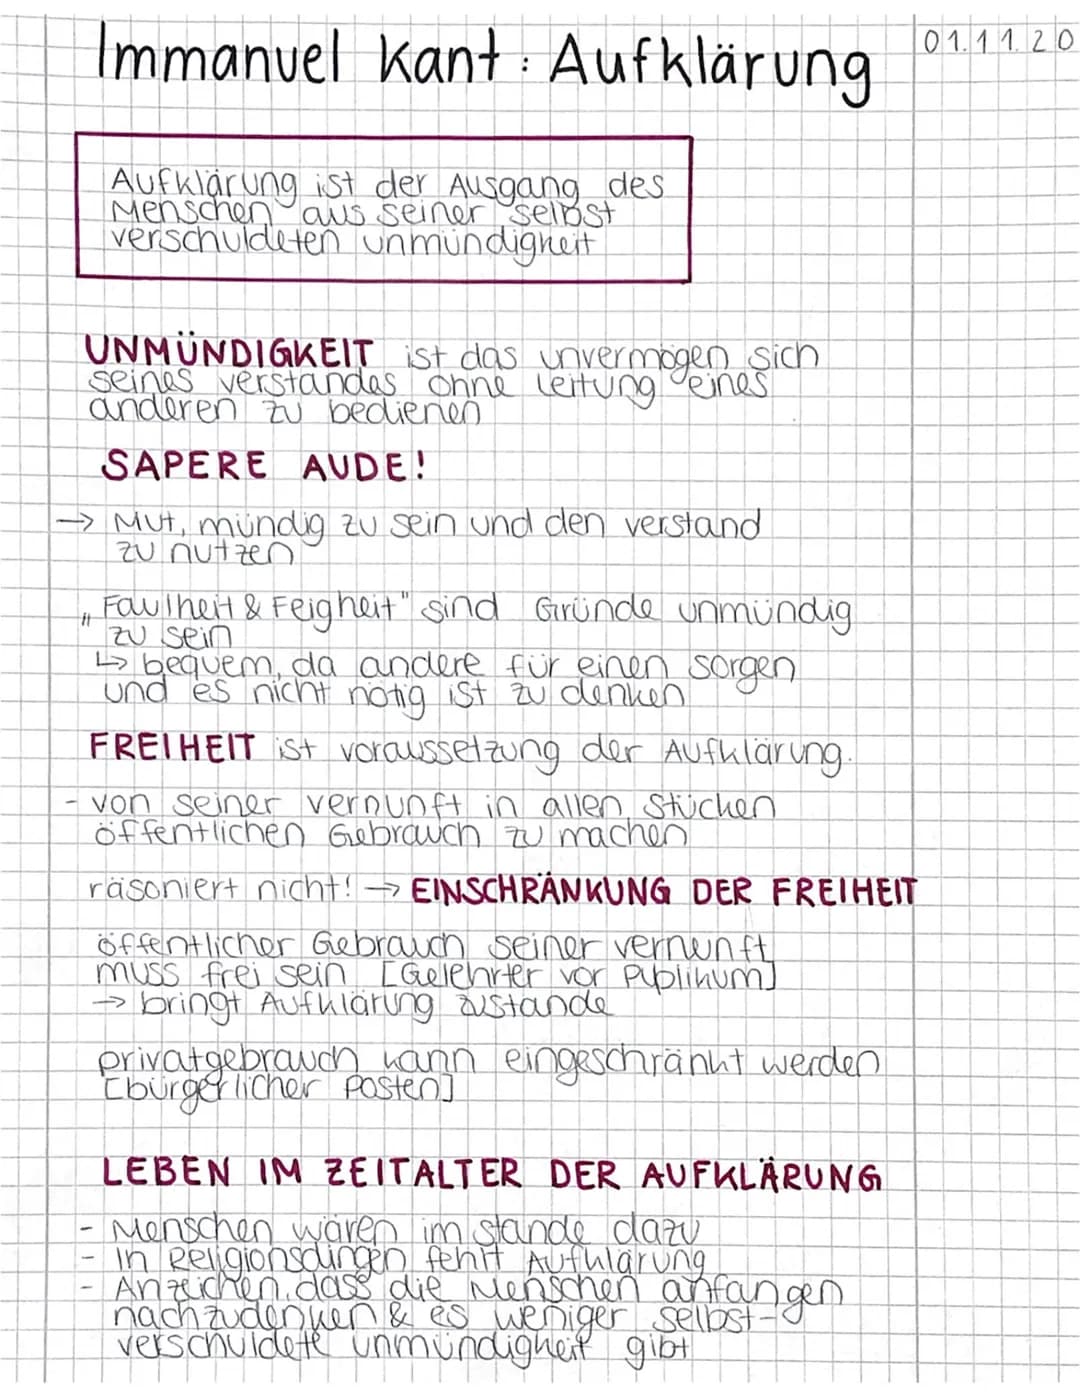 Immanuel Kant: Aufklärung
01.11.20
Aufklärung ist der Ausgang des
Menschen aus seiner selbst
verschuldeten unmündigkeit
UNMÜNDIGKEIT ist das unvermögen sich
seines verstandes ohne Leitung eines
anderen zu bedienen
SAPERE AUDE!
→ Mut, mündig zu sein und den verstand
zu nutzen
„Faulheit & Feigheit" sind Gründe unmündig
zu sein
↳ bequem, da andere für einen sorgen
und es nicht nötig ist zu denken
FREIHEIT ist voraussetzung der Aufklärung.
- von seiner vernunft in allen Stücken
öffentlichen Gebrauch zu machen
räsoniert nicht! → EINSCHRÄNKUNG DER FREIHEIT
öffentlicher Gebrauch seiner vernunft
muss frei sein [Gelehrter vor Publikum]
→ bringt Aufklärung zustande
privatgebrauch kann eingeschränkt werden
[bürgerlicher Posten]
LEBEN IM ZEITALTER DER AUFKLÄRUNG
- Menschen wären im stande dazu
- In Religionsdingen fehlt Aufklärung
- Anzeichen, dass die Menschen anfangen
nachzudenken & es weniger selbst-
verschuldete unmündigkeit gibt